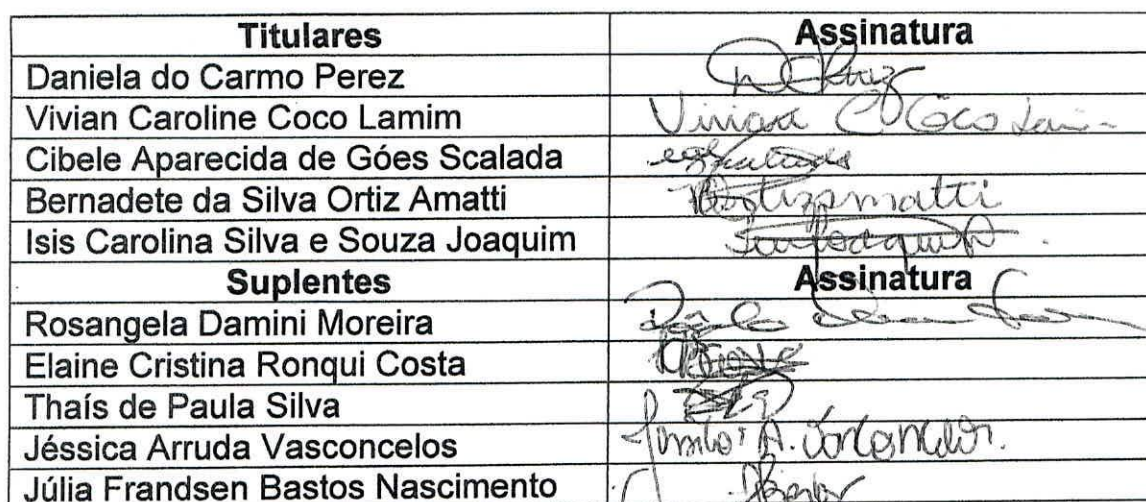 Titulares Assinatura
Daniela do Carmo Perez
Vivian Caroline Coco Lamim Vivian C Coco Lami
Cibele Aparecida de Góes Scalada
Bernadete da Silva Ortiz Amatti Ortizamatti
Isis Carolina Silva e Souza Joaquim
Suplentes Assinatura
Rosangela Damini Moreira
Elaine Cristina Ronqui Costa
Thaís de Paula Silva
Jéssica Arruda Vasconcelos
Júlia Frandsen Bastos Nascimento